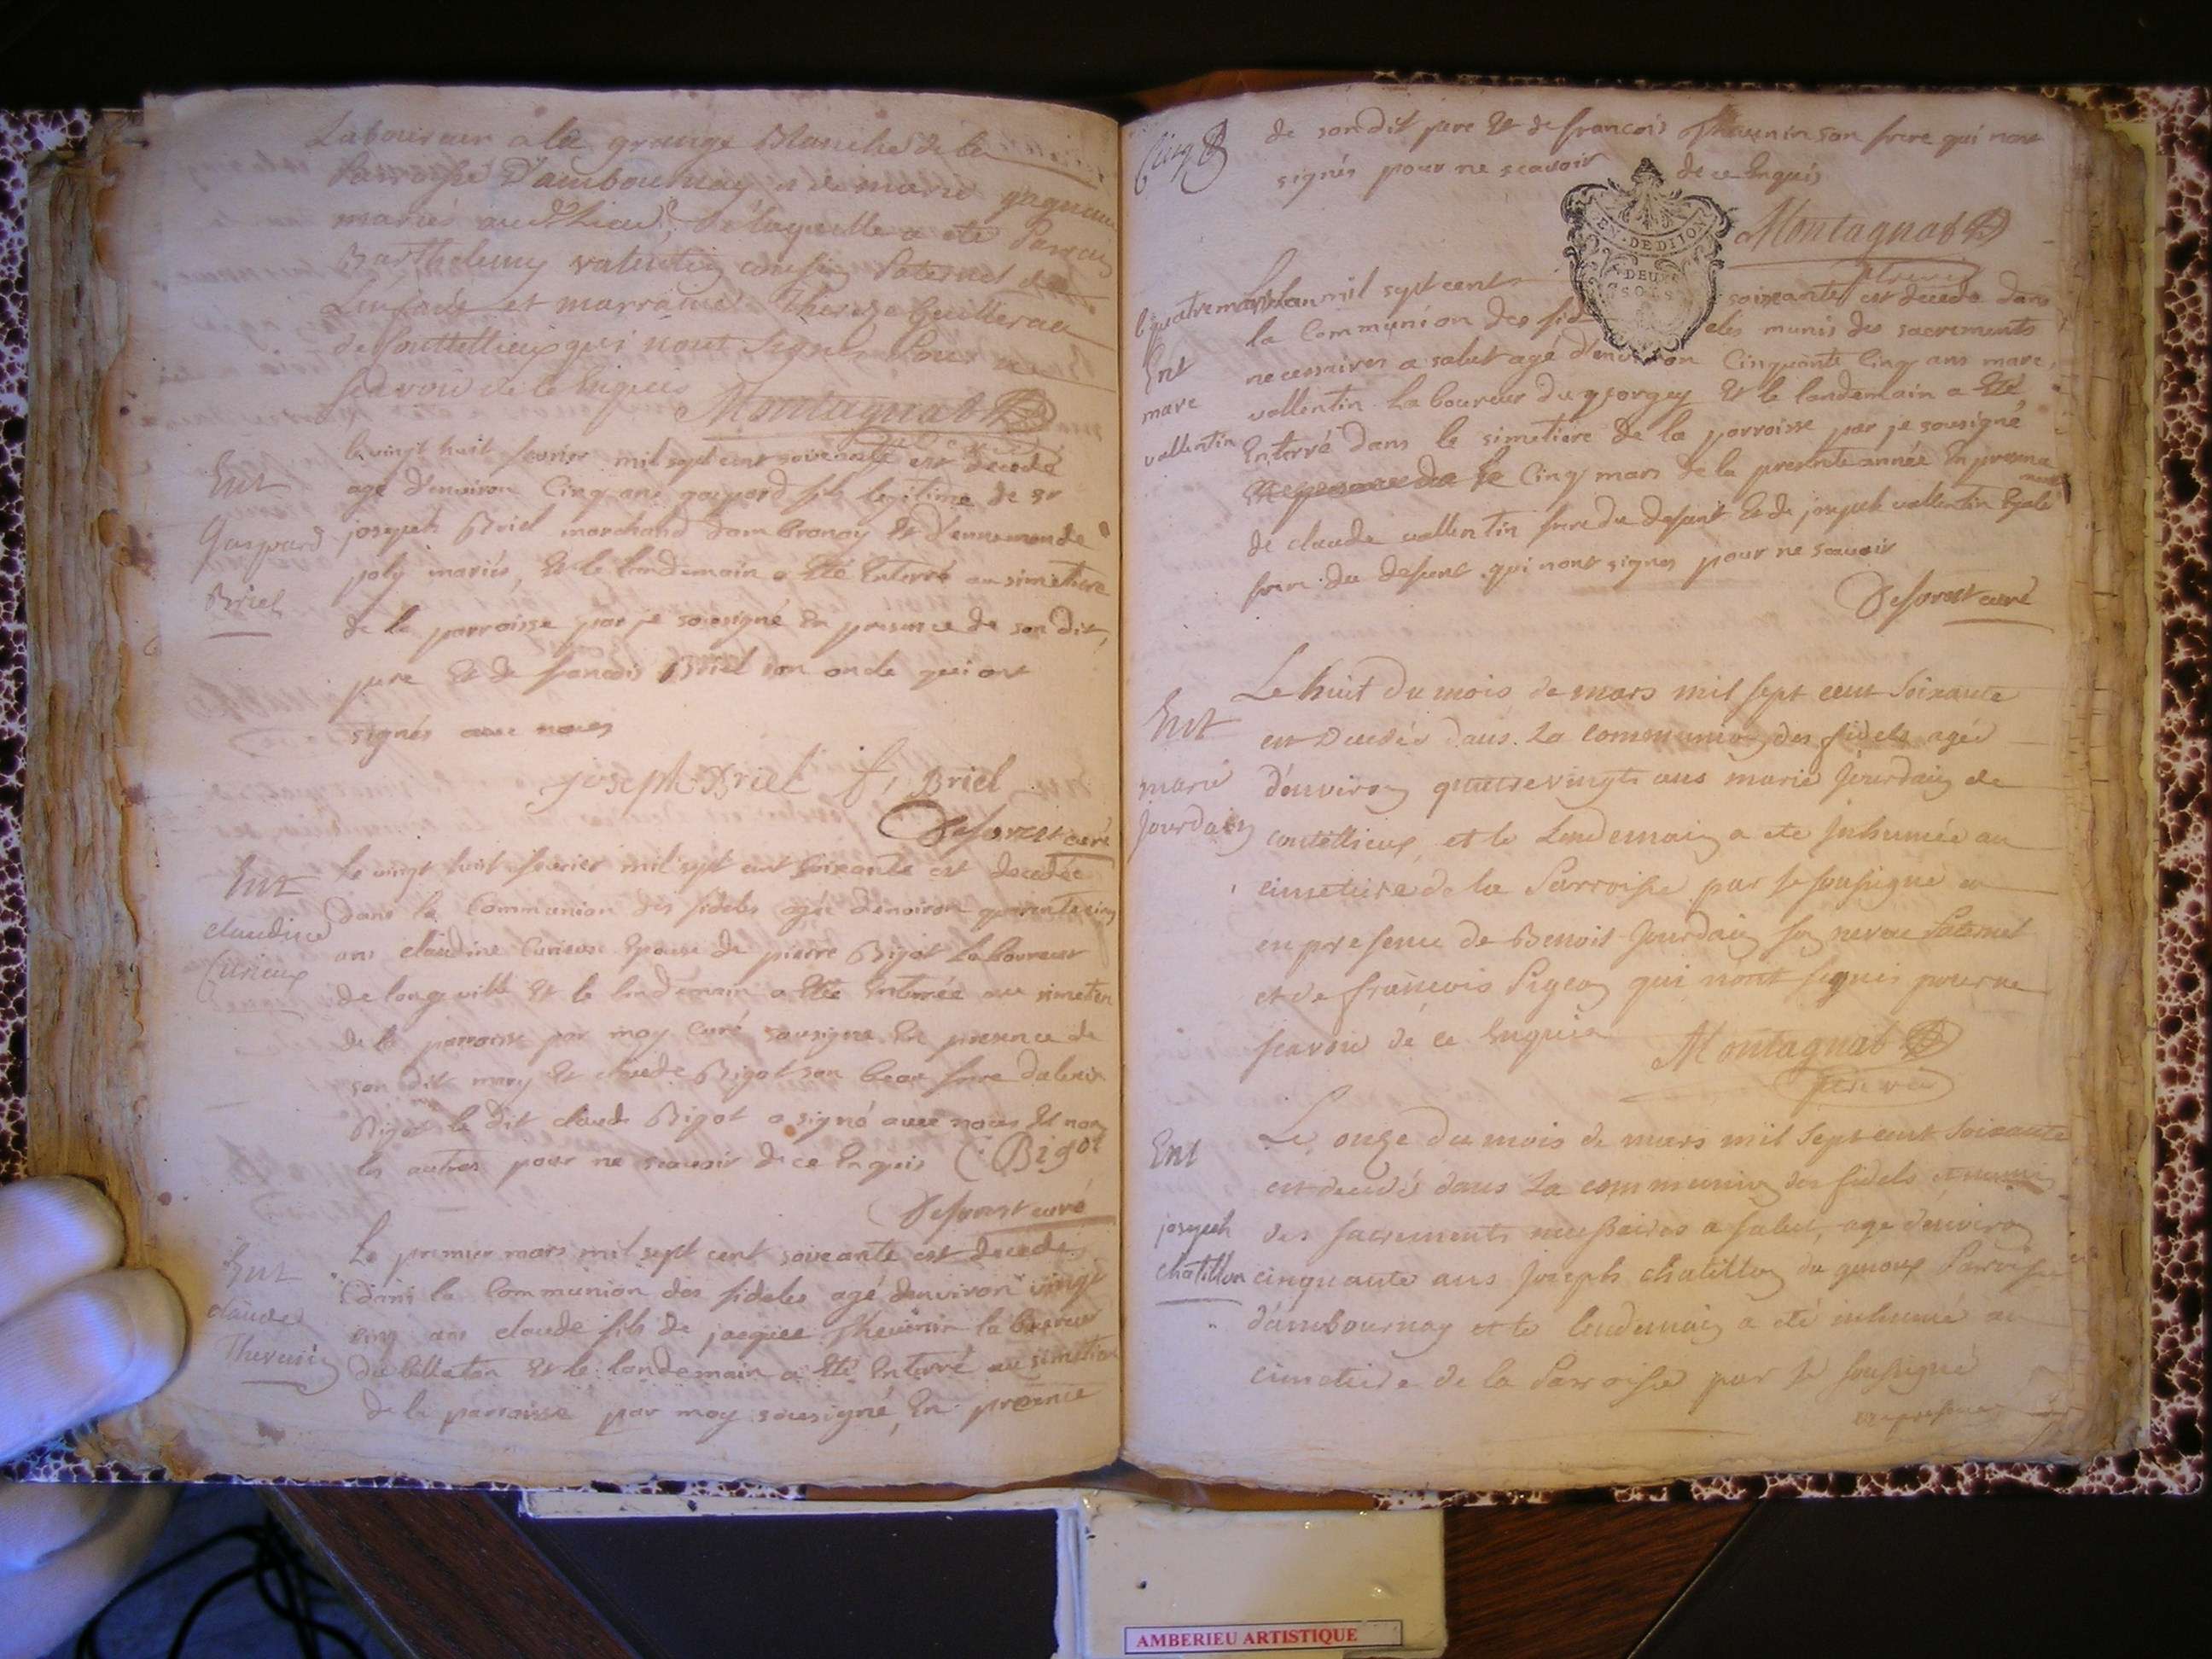 Laboureur a la grange Blanche de la
Parroisse D'ambournay et de marie gagneux
mariés audit Lieu, de laquelle a eté Parrain
Barthelemy valentin cousin Paternel de
Lenfant et marraine Thereze Guillerau
de Couttellieux qui nont Signés Pour ne
scavoir de ce Enquis Montagnat
vicaire
Ent
Gaspard
Briel
le vingt huit fevrier mil sept cent soixante est decedé
agé d'environ Cinq ans gaspard fils legitime de sr
joseph Briel marchand dambronay Et d'ennemonde
joly mariés, Et le landemain a Eté Enterré au simetiere
de la parroisse par je sousigné En presence de son dit,
pere Et de francois Briel son oncle qui ont
signés avec nous
joseph Briel f, Briel
Deforest curé
Ent
claudine
Curieux
le vingt huit fevrier mil sept cent soixante est decedée
dans la Communion des fideles agée denviron quarente cinq
ans claudine Curieux Epouse de pierre Bigot Laboureur
de longeville Et le landemain a Eté Enterrée au simetiere
de la parroisse par moy Curé sousigné En presence de
son dit mary Et claude Bigot son beau frere
Bigot le dit claude Bigot a signé avec nous Et non
les autres pour ne scavoir de ce Enquis C. Bigot
Deforest curé
Ent
claude
Thevenin
Le premier mars mil sept cent soixante est decedé
dans la Communion des fideles agé denviron vingt
cinq ans claude fils de jacques Thevenin laboureur
du bellaton Et le landemain a Eté Enterré au simetiere
de la parroisse par moy sousigné, En presence
Cinq
de sondit pere Et de francois Thevenin son frere qui nont
signés pour ne scavoir de ce Enquis
Montagnat
vicaire
EN. DE DIJON
DEUX
SOLS
le quatre mars Lan mil sept cents soixante est decedé dans
la Communion des fideles munis des sacrements
Ent
marc
vallentin
necessaires a salut agé d'environ Cinquante Cinq ans marc
vallentin Laboureur du georgey Et le landemain a Eté
Enterré dans le simetiere de la parroisse par je sousigné
le Cinq mars de la presente année En presence
de claude vallentin frere du defunt Et de joseph vallentin
frere du defunt qui nont signes pour ne scavoir
Deforest curé
Ent
marie
Jourdain
Le huit du mois de mars mil sept cent soixante
est Decedée dans La communion des fidels agée
d'environ quatrevingts ans marie Jourdain de
couttellieux, et le Lendemain a eté Inhumée au
cimetiere de la Parroisse par je soussigné
en presence de Benoit Jourdain son neveu Paternel
et de francois Pigeon qui nont signés pour ne
scavoir de ce Enquis Montagnat
vicaire
Ent
joseph
chatillon
Le onze du mois de mars mil sept cent soixante
est decedé dans La communion des fidels et muni
des sacrements necessaires a salut, agé denviron
cinquante ans Joseph chatillon du genoux Parroisse
d'ambournay et le lendemain a eté inhumé au
cimetiere de la Parroisse par je soussigné
en presence
AMBERIEU ARTISTIQUE